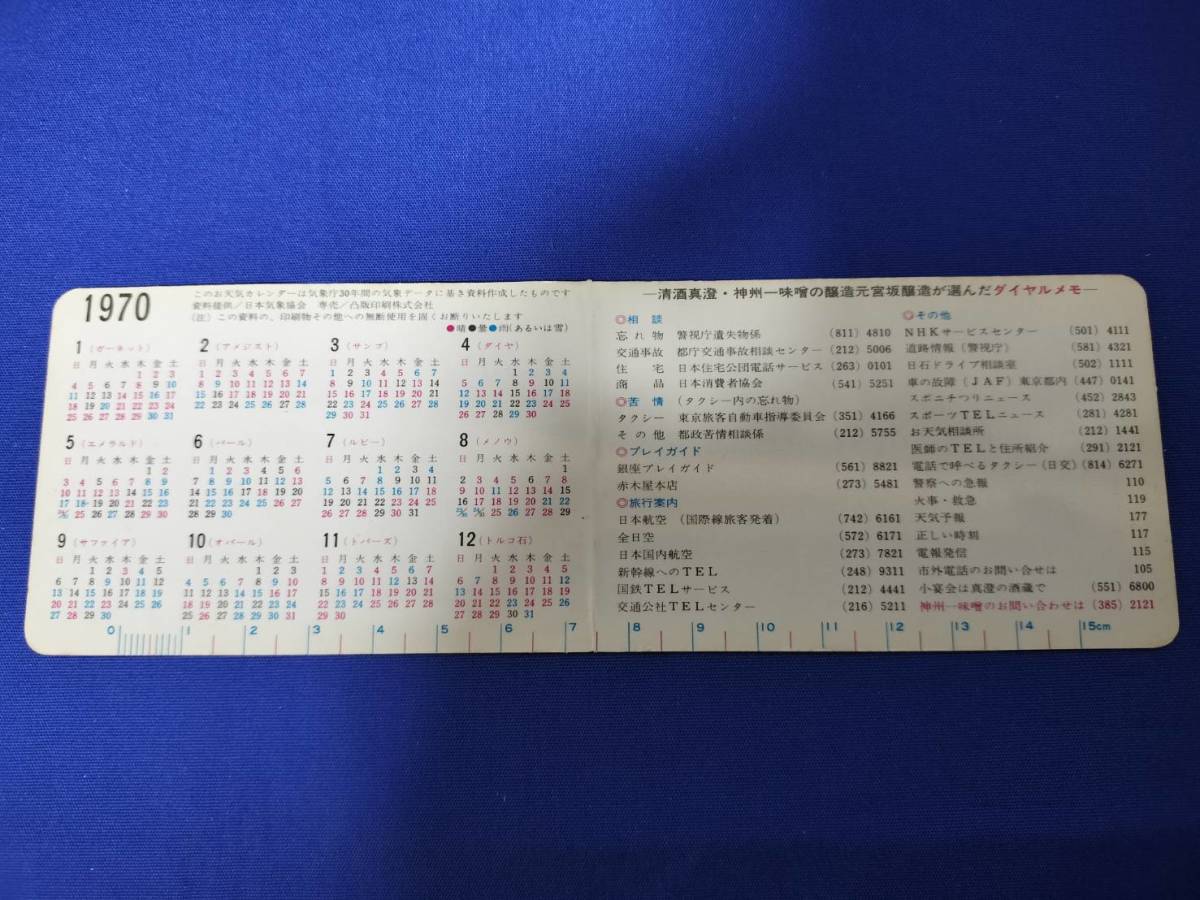 1970
このお天気カレンダーは気象庁30年間の気象データに基き資料作成したものです
資料提供/日本気象協会 専売/凸版印刷株式会社
(注)この資料の、印刷物その他への無断使用を固くお断りいたします
●晴●曇●雨(あるいは雪)
1(ガーネット)
日 月 火 水 木 金 土
1 2 3
4 5 6 7 8 9 10
11 12 13 14 15 16 17
18 19 20 21 22 23 24
25 26 27 28 29 30 31
2(アメジスト)
日 月 火 水 木 金 土
1 2 3 4 5 6 7
8 9 10 11 12 13 14
15 16 17 18 19 20 21
22 23 24 25 26 27 28
3(サンゴ)
日 月 火 水 木 金 土
1 2 3 4 5 6 7
8 9 10 11 12 13 14
15 16 17 18 19 20 21
22 23 24 25 26 27 28
29 30 31
4(ダイヤ)
日 月 火 水 木 金 土
1 2 3 4
5 6 7 8 9 10 11
12 13 14 15 16 17 18
19 20 21 22 23 24 25
26 27 28 29 30
5(エメラルド)
日 月 火 水 木 金 土
1 2
3 4 5 6 7 8 9
10 11 12 13 14 15 16
17 18 19 20 21 22 23
24/31 25 26 27 28 29 30
6(パール)
日 月 火 水 木 金 土
1 2 3 4 5 6
7 8 9 10 11 12 13
14 15 16 17 18 19 20
21 22 23 24 25 26 27
28 29 30
7(ルビー)
日 月 火 水 木 金 土
1 2 3 4
5 6 7 8 9 10 11
12 13 14 15 16 17 18
19 20 21 22 23 24 25
26 27 28 29 30 31
8(メノウ)
日 月 火 水 木 金 土
1
2 3 4 5 6 7 8
9 10 11 12 13 14 15
16 17 18 19 20 21 22
23/30 24/31 25 26 27 28 29
9(サファイア)
日 月 火 水 木 金 土
1 2 3 4 5
6 7 8 9 10 11 12
13 14 15 16 17 18 19
20 21 22 23 24 25 26
27 28 29 30
10(オパール)
日 月 火 水 木 金 土
1 2 3
4 5 6 7 8 9 10
11 12 13 14 15 16 17
18 19 20 21 22 23 24
25 26 27 28 29 30 31
11(トパーズ)
日 月 火 水 木 金 土
1 2 3 4 5 6 7
8 9 10 11 12 13 14
15 16 17 18 19 20 21
22 23 24 25 26 27 28
29 30
12(トルコ石)
日 月 火 水 木 金 土
1 2 3 4 5
6 7 8 9 10 11 12
13 14 15 16 17 18 19
20 21 22 23 24 25 26
27 28 29 30 31
—清酒真澄・神州一味噌の醸造元宮坂醸造が選んだダイヤルメモ—
◎相談
忘れ物 警視庁遺失物係 (811)4810
交通事故 都庁交通事故相談センター (212)5006
住宅 日本住宅公団電話サービス (263)0101
商品 日本消費者協会 (541)5251
◎苦情(タクシー内の忘れ物)
タクシー 東京旅客自動車指導委員会 (351)4166
その他 都政苦情相談係 (212)5755
◎プレイガイド
銀座プレイガイド (561)8821
赤木屋本店 (273)5481
◎旅行案内
日本航空(国際線旅客発着) (742)6161
全日空 (572)6171
日本国内航空 (273)7821
新幹線へのTEL (248)9311
国鉄TELサービス (212)4441
交通公社TELセンター (216)5211
◎その他
NHKサービスセンター (501)4111
道路情報(警視庁) (581)4321
日石ドライブ相談室 (502)1111
車の故障(JAF)東京都内 (447)0141
スポニチつりニュース (452)2843
スポーツTELニュース (281)4281
お天気相談所 (212)1441
医師のTELと住所紹介 (291)2121
電話で呼べるタクシー(日交) (814)6271
警察への急報 110
火事・救急 119
天気予報 177
正しい時刻 117
電報発信 115
市外電話のお問い合せは 105
小宴会は真澄の酒蔵で (551)6800
神州一味噌のお問い合わせは (385)2121
0 1 2 3 4 5 6 7 8 9 10 11 12 13 14 15cm